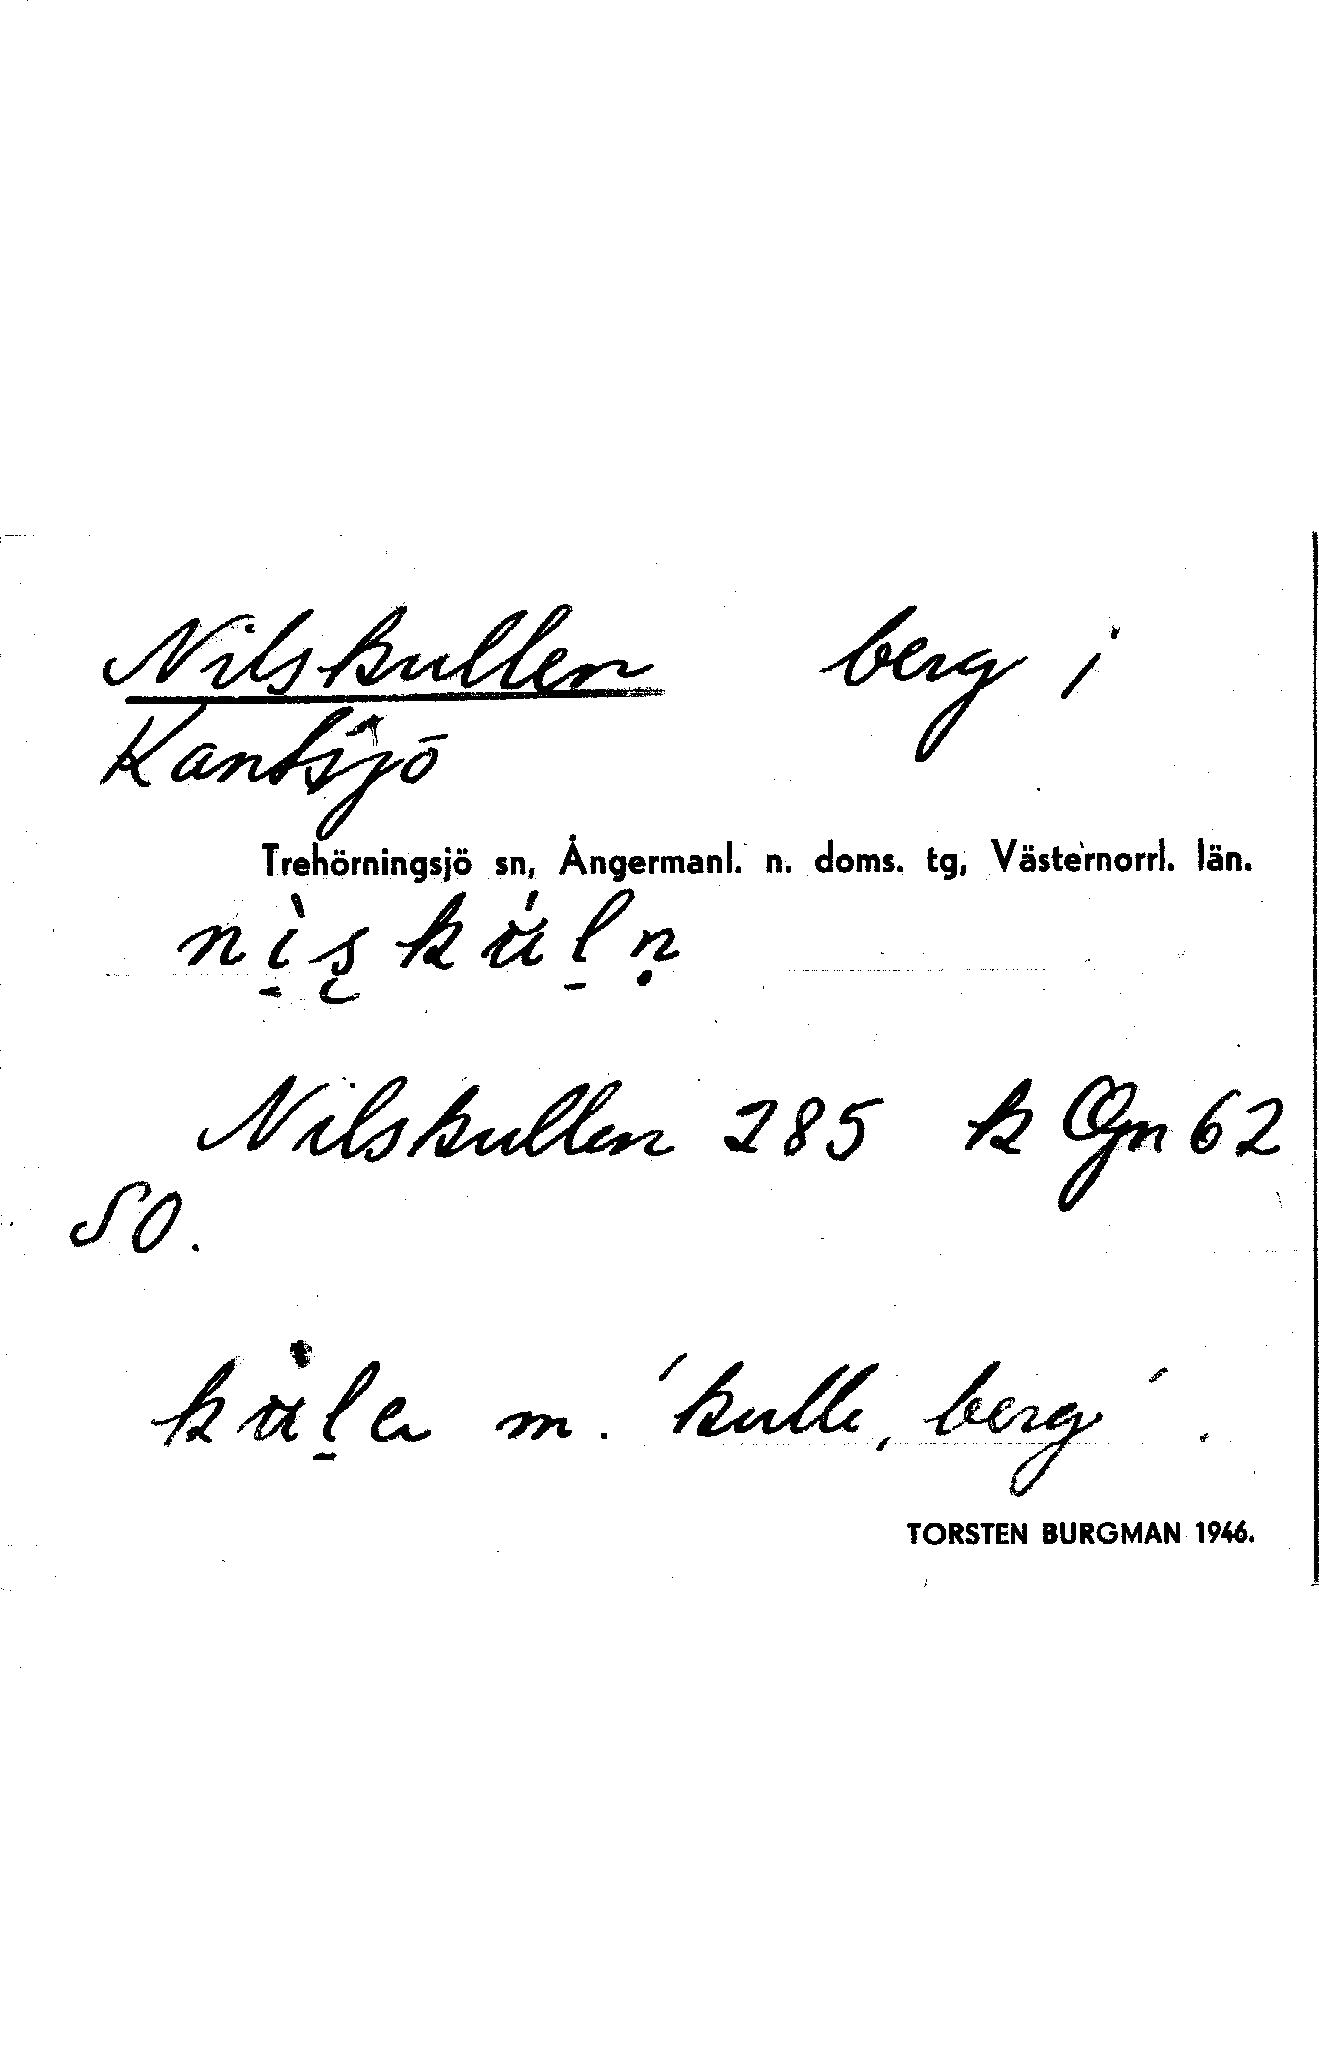 Nilskullen berg i
Kantsjö
Trehörningsjö sn, Ångermanl. n. doms. tg, Västernorrl. län.
Nilskullen 285 k Ögn 62
SO.
m. 'kulle, berg'.
TORSTEN BURGMAN 1946.